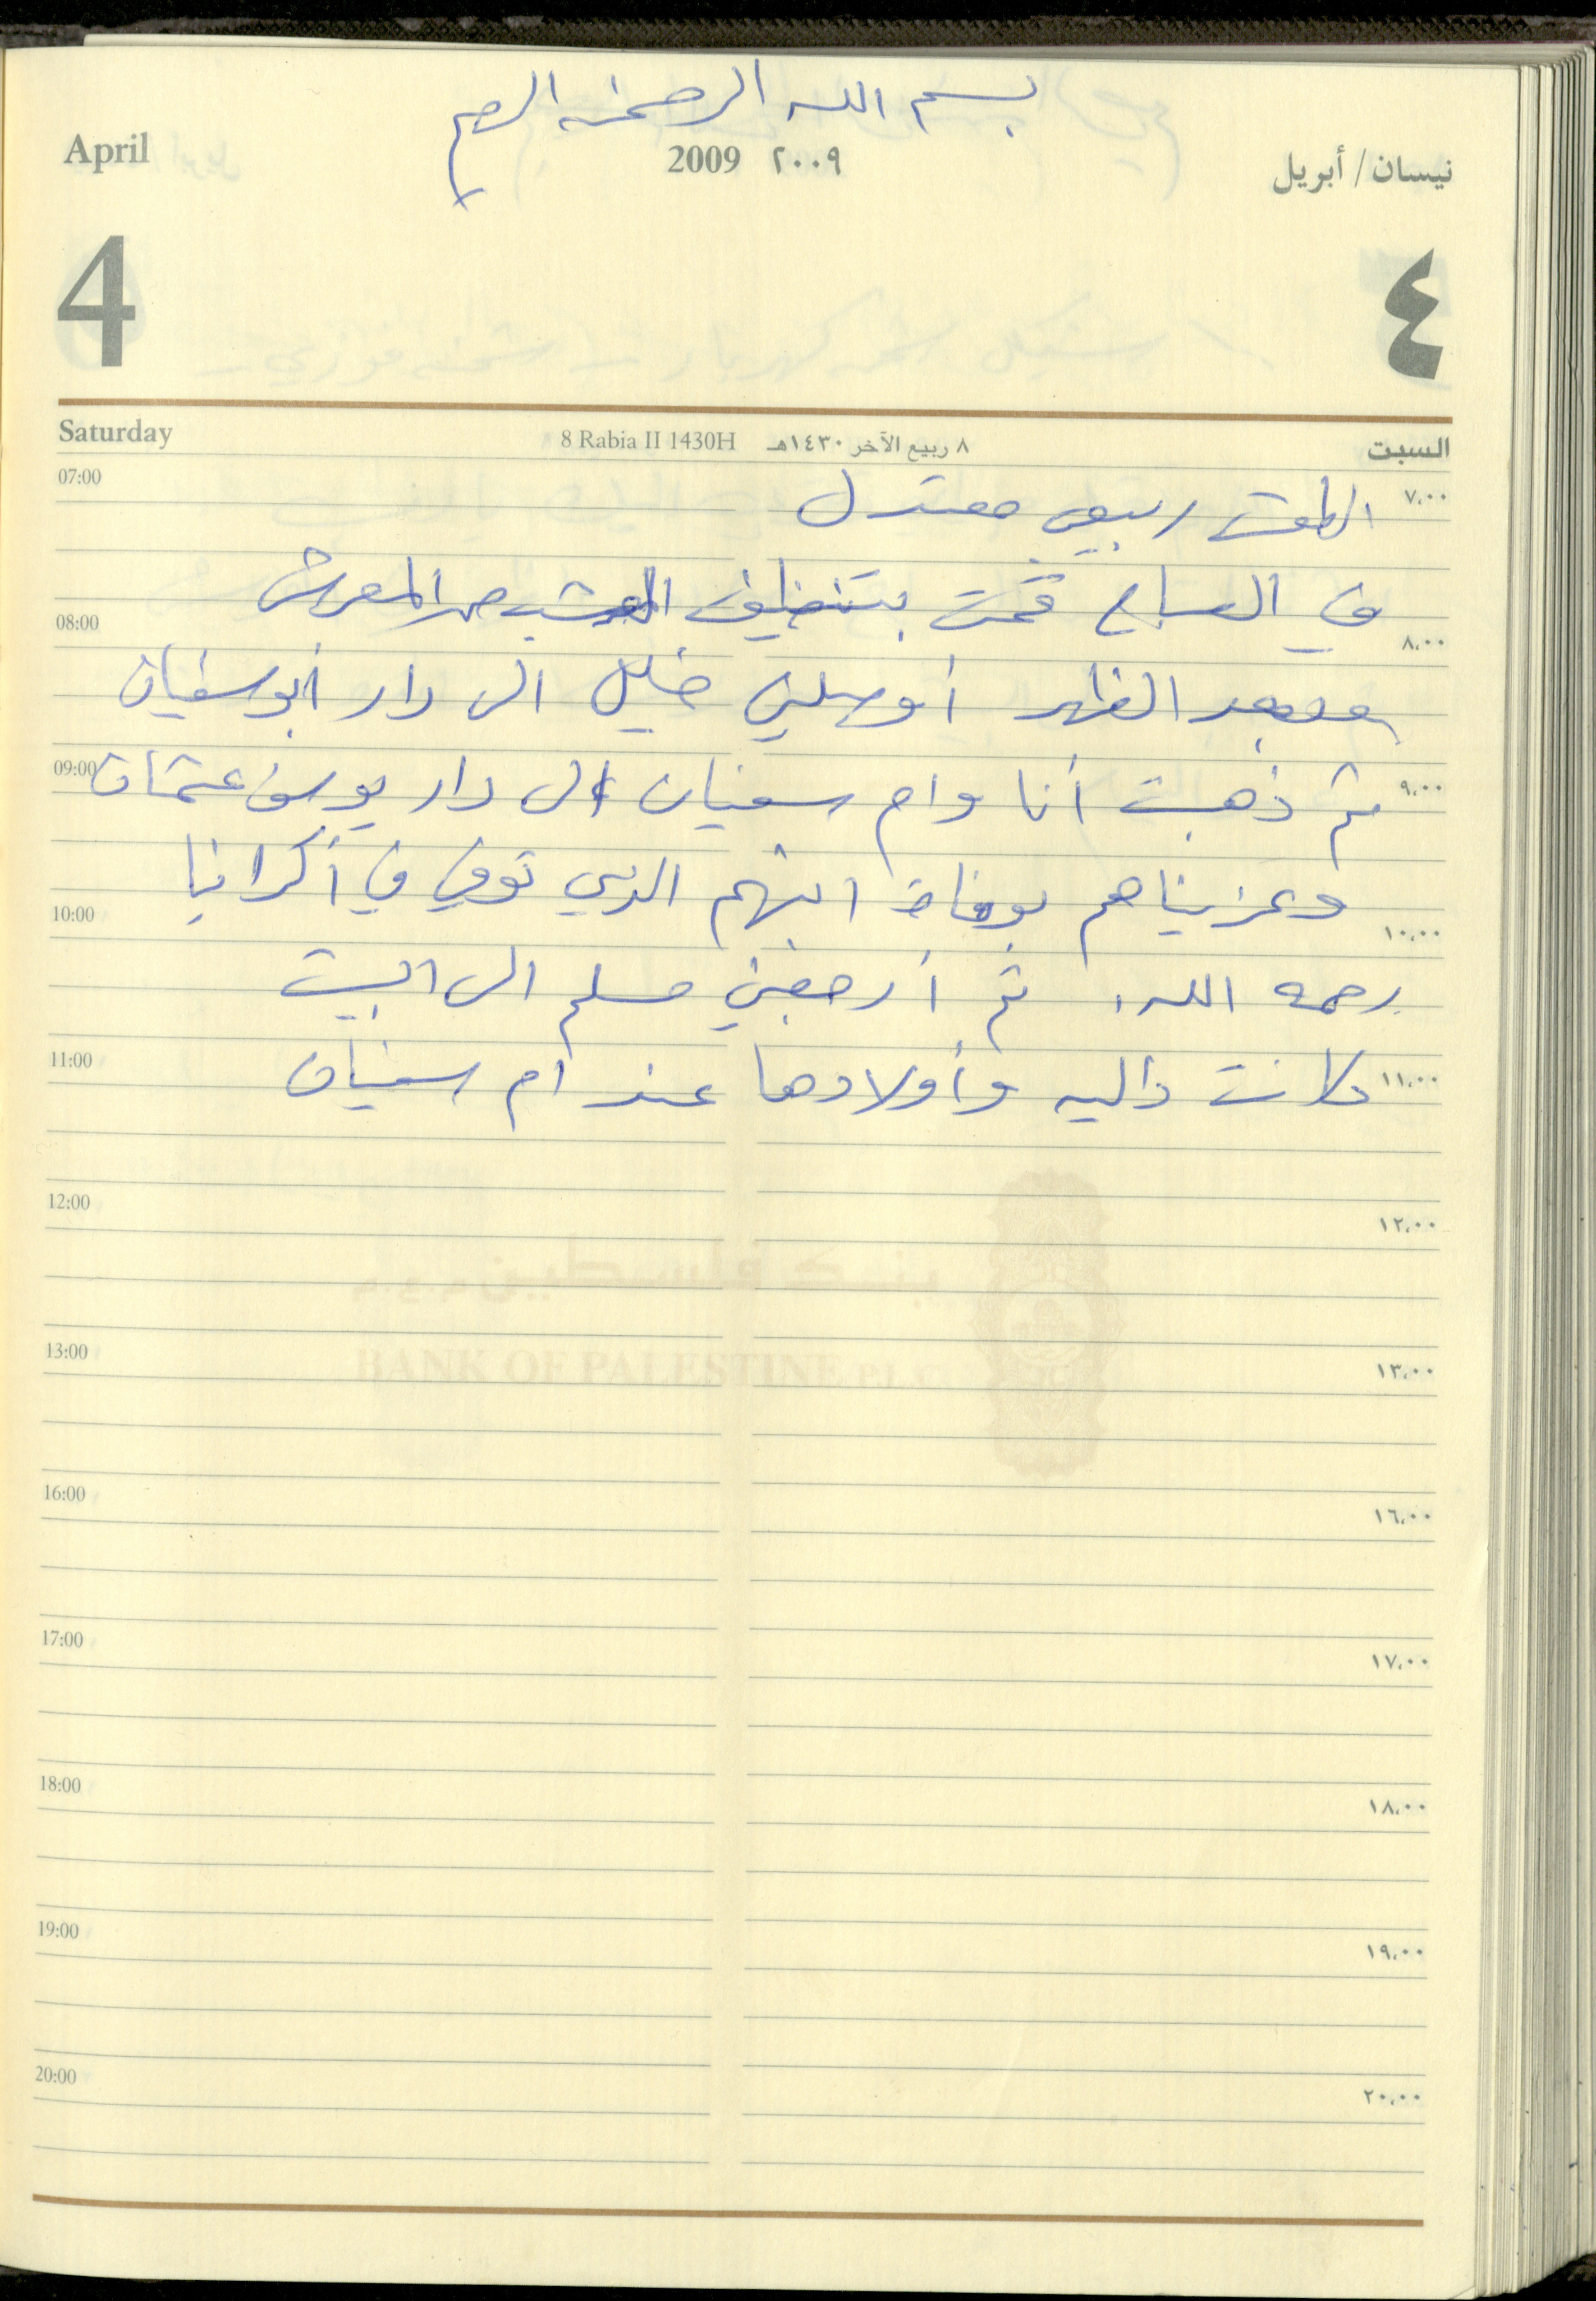 بسم الله الرحمن الرحيم
April 2009 ٢٠٠٩ نيسان / أبريل
4 ٤
Saturday 8 Rabia II 1430H ٨ ربيع الآخر ١٤٣٠هـ السبت
07:00 ٧،٠٠
الطقس ربيعي معتدل
في الصباح قمت بتنظيف العشب من المعرش
08:00 ٨،٠٠
وبعد الظهر أوصلني خليل الى دار أبو سفيان
09:00 ٩،٠٠
ثم ذهبت أنا وام سفيان الى دار يوسف عثمان
وعزيناهم بوفاة ابنهم الذي توفي في أكرانيا
10:00 ١٠،٠٠
رحمه الله. ثم أرجعني مسلم الى البيت
11:00 ١١،٠٠
كانت داليه وأولادها عند ام سفيان
12:00 ١٢،٠٠
بنك فلسطين م.ع.م
BANK OF PALESTINE P.L.C
13:00 ١٣،٠٠
16:00 ١٦،٠٠
17:00 ١٧،٠٠
18:00 ١٨،٠٠
19:00 ١٩،٠٠
20:00 ٢٠،٠٠